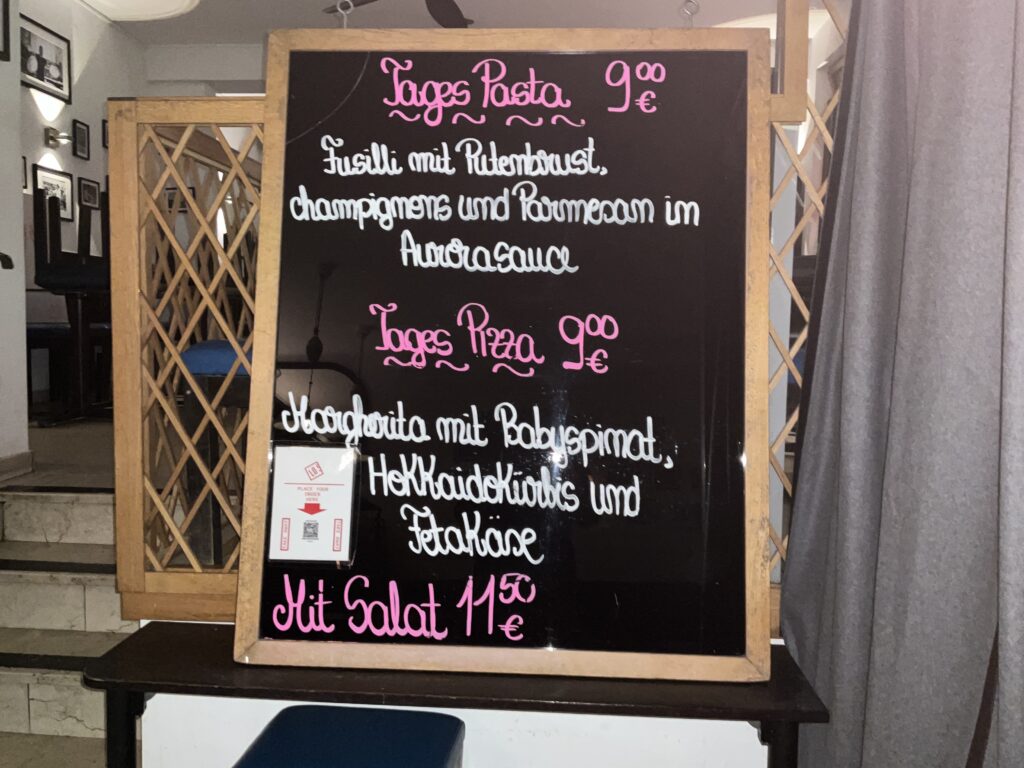 Tages Pasta 9⁰⁰ €
Fusilli mit Putenbrust,
champignons und Parmesan im
Aurorasauce
Tages Pizza 9⁰⁰ €
Margherita mit Babyspinat,
HoKKaidoKürbis und
FetaKäse
PLACE YOUR
ORDER
HERE
Mit Salat 11⁵⁰ €